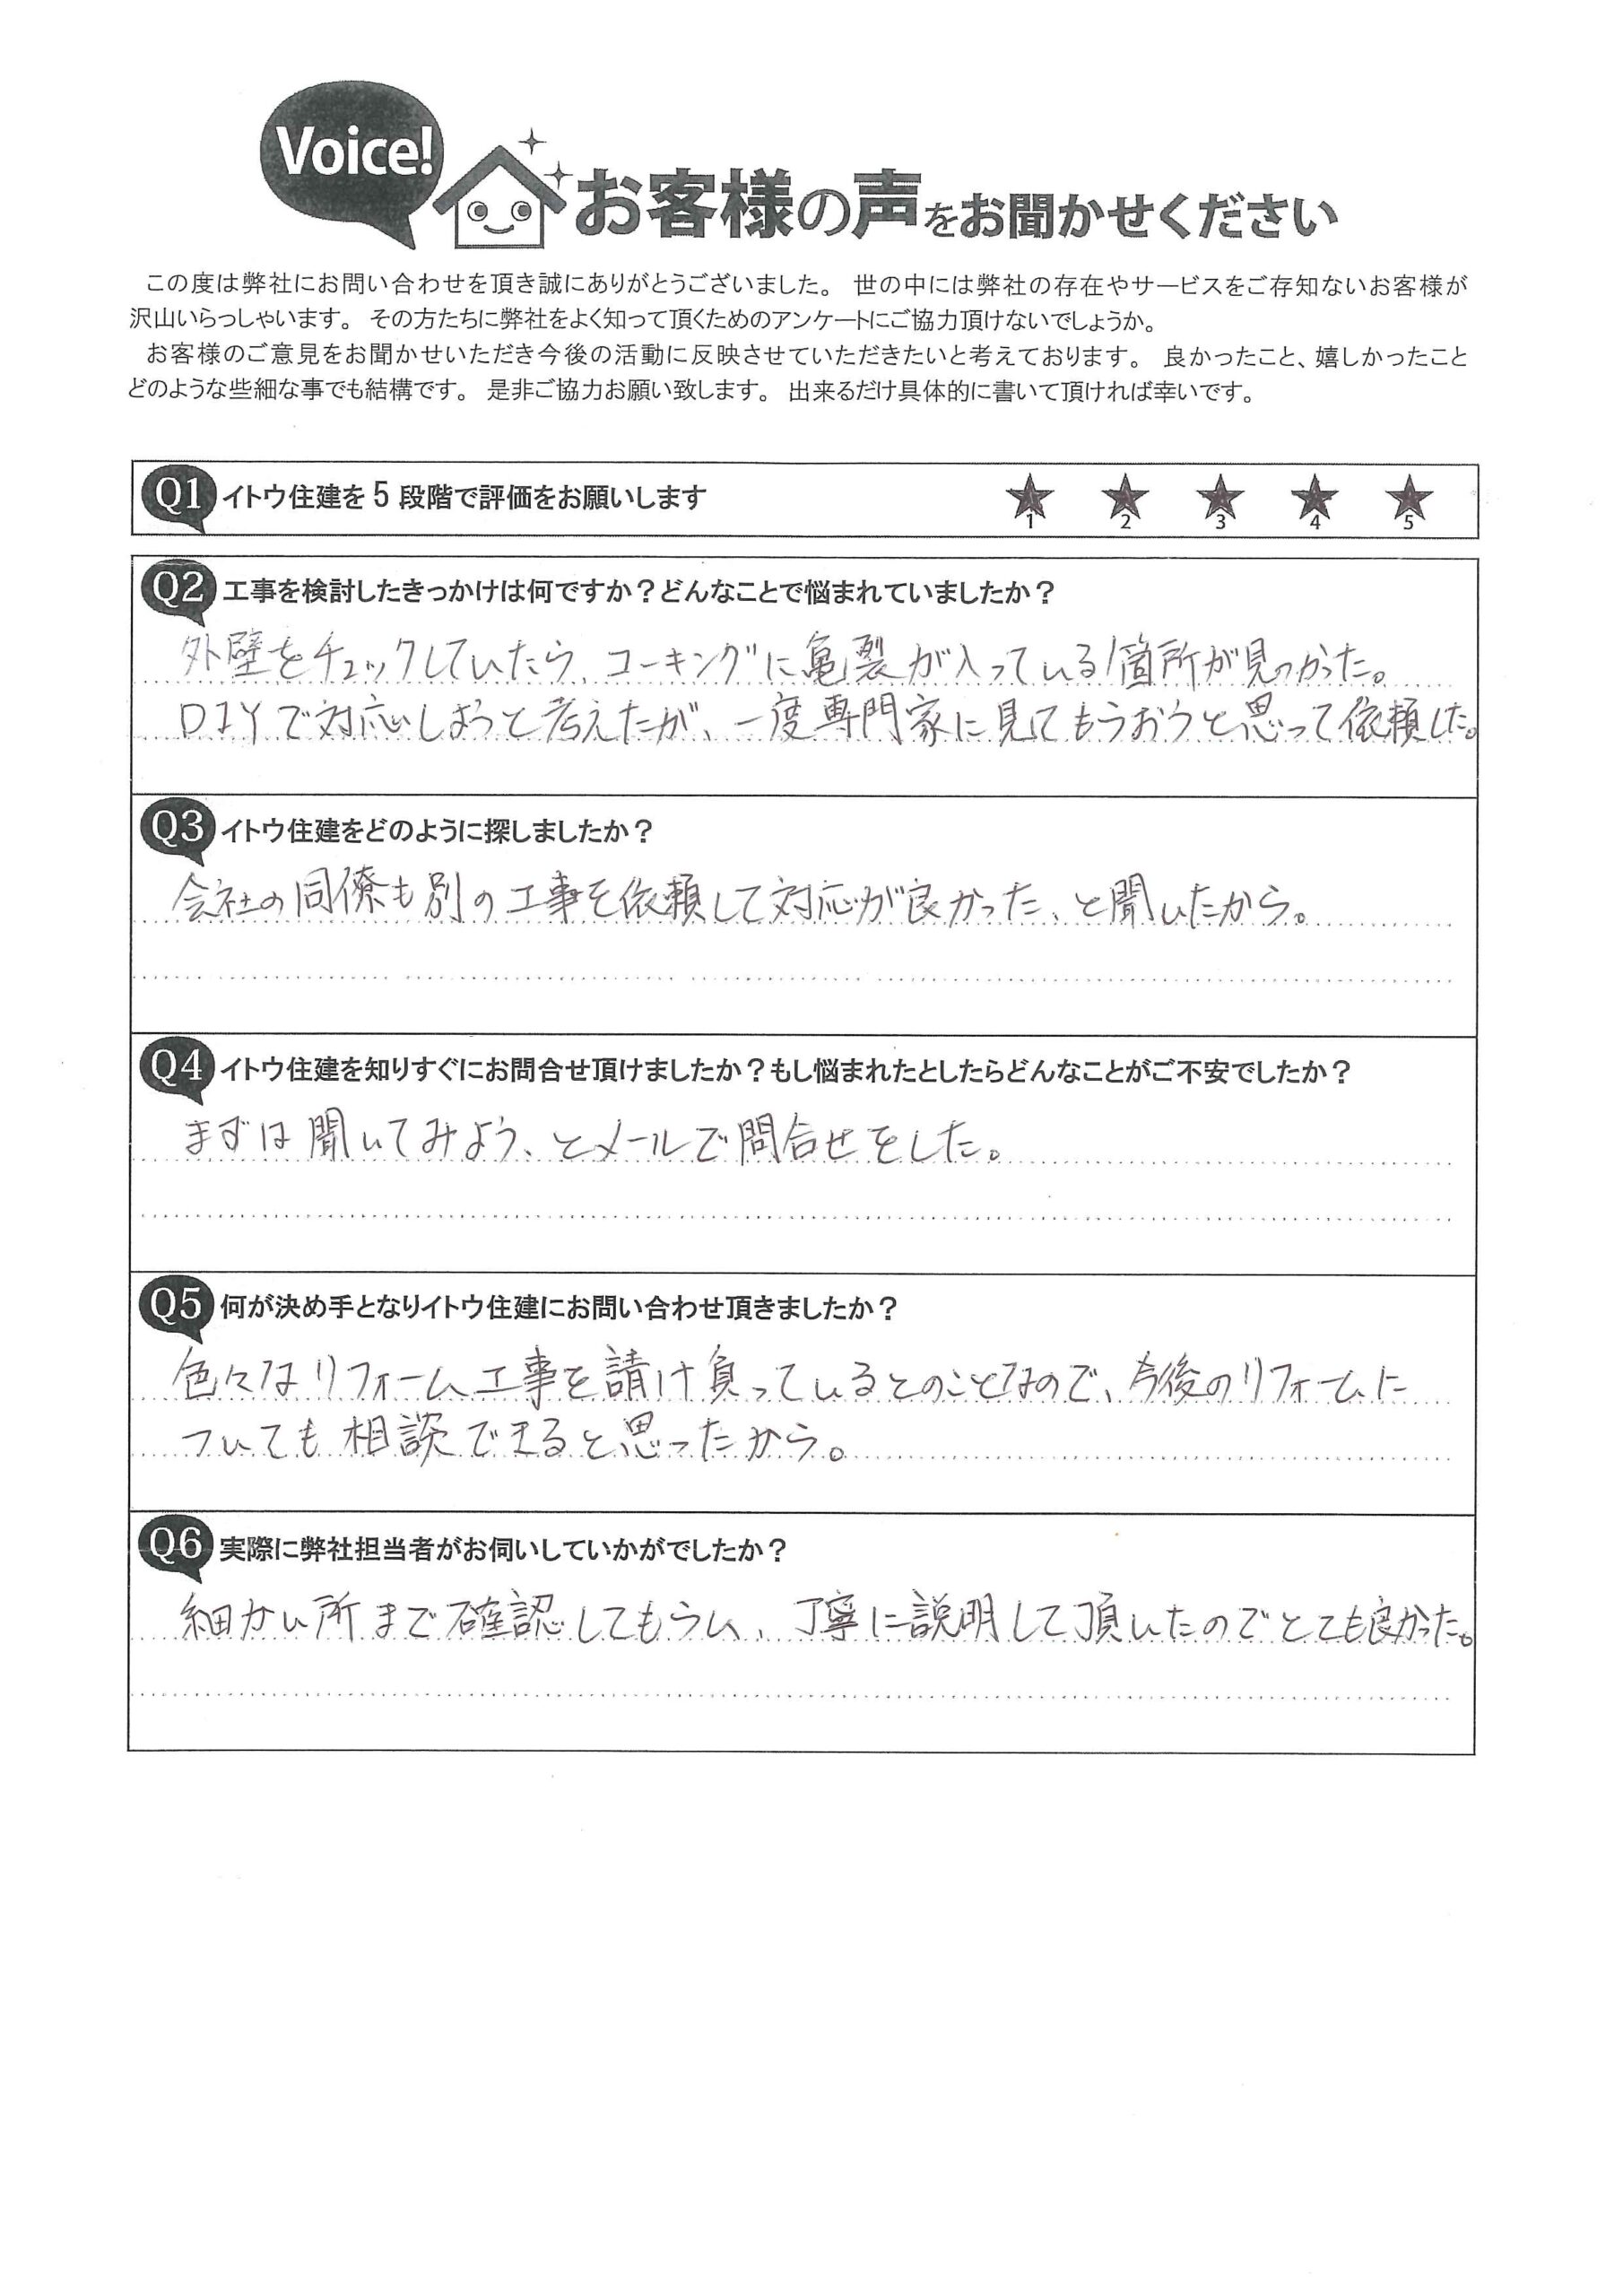 Voice!
お客様の声をお聞かせください
この度は弊社にお問い合わせを頂き誠にありがとうございました。 世の中には弊社の存在やサービスをご存知ないお客様が
沢山いらっしゃいます。 その方たちに弊社をよく知って頂くためのアンケートにご協力頂けないでしょうか。
お客様のご意見をお聞かせいただき今後の活動に反映させていただきたいと考えております。 良かったこと、嬉しかったこと
どのような些細な事でも結構です。 是非ご協力お願い致します。 出来るだけ具体的に書いて頂ければ幸いです。
Q1 イトウ住建を5段階で評価をお願いします ★ ★ ★ ★ ★
1 2 3 4 5
Q2 工事を検討したきっかけは何ですか？どんなことで悩まれていましたか？
外壁をチェックしていたら、コーキングに亀裂が入っている箇所が見つかった。
DIYで対応しようと考えたが、一度専門家に見てもらおうと思って依頼した。
Q3 イトウ住建をどのように探しましたか？
会社の同僚も別の工事を依頼して対応が良かった、と聞いたから。
Q4 イトウ住建を知りすぐにお問合せ頂けましたか？もし悩まれたとしたらどんなことがご不安でしたか？
まずは聞いてみよう、とメールで問合せをした。
Q5 何が決め手となりイトウ住建にお問い合わせ頂きましたか？
色々なリフォーム工事を請け負っているとのことなので、今後のリフォームに
ついても相談できると思ったから。
Q6 実際に弊社担当者がお伺いしていかがでしたか？
細かい所まで確認してもらい、丁寧に説明して頂いたのでとても良かった。